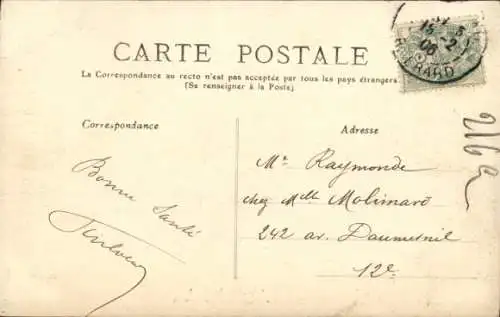 CARTE POSTALE
La Correspondance au recto n'est pas acceptée par tous les pays étrangers
(Se renseigner à la Poste)
Correspondance
Adresse
Bonne Santé
Mr Raymonde
chez Melle Molimard
242 av. Daumesnil
12e
216a